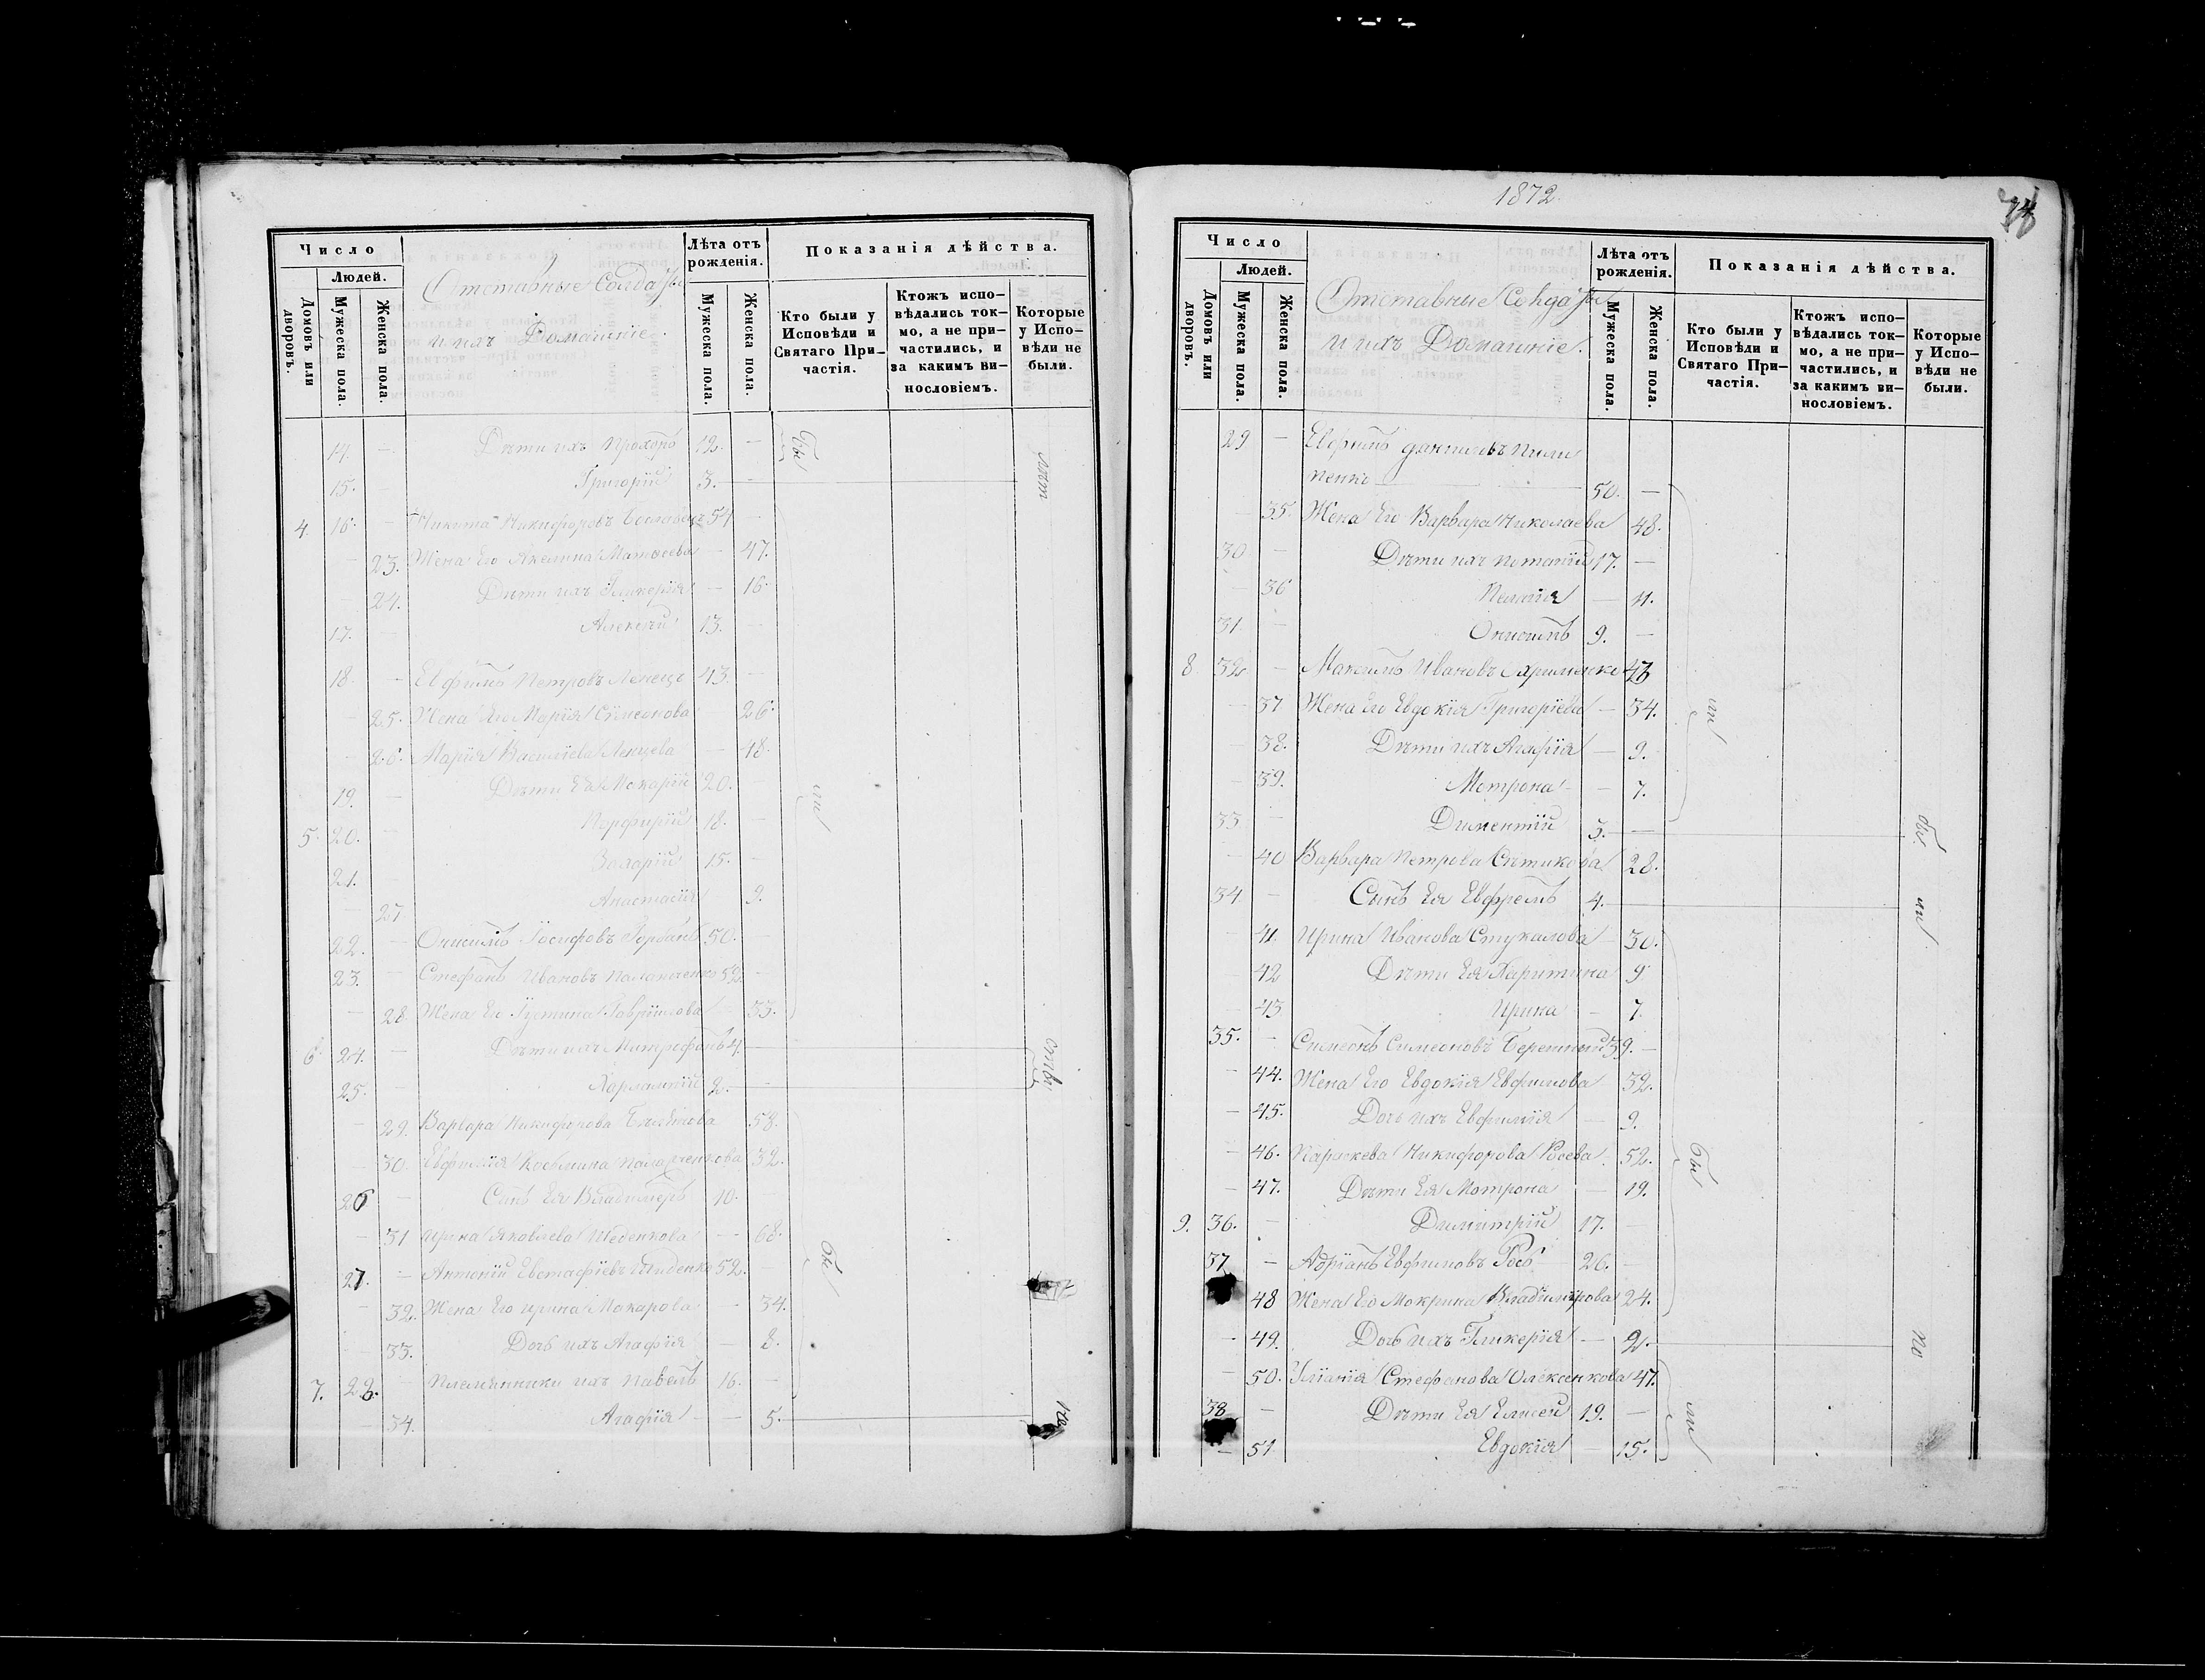 Число
Людей.
Домовъ или дворовъ.
Мужеска пола.
Женска пола.
Отставные Солдаты
и ихъ Домашніе.
Лѣта отъ рожденія.
Мужеска пола.
Женска пола.
Показанія дѣйства.
Кто были у Исповѣди и Святаго Причастія.
Ктожъ исповѣдались токмо, а не причастились, и за какимъ винословіемъ.
Которые у Исповѣди не были.
14. — Дѣти ихъ Прохоръ 12. —
15. Григорій 3. —
4. 16. — Никита Никифоровъ 54 —
— 23. Жена Его Акелина Матѳеева — 47.
— 24. Дѣти ихъ Гликерія — 16.
17. — Алексѣй 13. —
18. — Евфимъ Петровъ Ленецъ 43. —
— 25. Жена Его Марія Симеонова 26.
— 26. Марія Василіева Ленцева — 48.
19. — Дѣти Ея Макарій 20. —
5. 20. — Порфирій 18. —
21. — Захарій 15. —
— 27 Анастасія — 9.
22. — Онисимъ Іосифовъ Горбань 50. —
23. — Стефанъ Ивановъ 52. —
— 28. Жена Его Іустина Гавріилова — 33.
6 24. — Дѣти ихъ Митрофанъ 4. —
25. — Харлампій 2. —
— 29. Варвара Никифорова 58.
— 30. Евфимія Космина 32.
26 — Сынъ Ея Владимиръ 10.
— 31 Ирина Яковлева Шеденкова — 68.
27. — Антоній Евстафіевъ Шиденко 52. —
— 32. Жена Его Ирина Макарова — 34.
— 33. Дочь ихъ Агафія — 8.
7. 28. — Племянники ихъ Павелъ 16. —
— 34. Агафія — 5.
1872
Число
Людей.
Домовъ или дворовъ.
Мужеска пола.
Женска пола.
Отставные Солдаты
и ихъ Домашніе.
Лѣта отъ рожденія.
Мужеска пола.
Женска пола.
Показанія дѣйства.
Кто были у Исповѣди и Святаго Причастія.
Ктожъ исповѣдались токмо, а не причастились, и за какимъ винословіемъ.
Которые у Исповѣди не были.
29 — Евфимъ Даниловъ Пили
пенко 50. —
— 35. Жена Его Варвара Николаева 48.
30 — Дѣти ихъ Потапій 17. —
— 36 Пелагія — 11.
31 — Онисимъ 9. —
8 32 — Максимъ Ивановъ Ахрименко 43
— 37 Жена Его Евдокія Григоріева — 34.
— 38. Дѣти ихъ Агафія — 9.
— 39. Мотрона — 7.
33 — Диментій 3. —
— 40 Варвара Петрова Сытикова 28.
34 — Сынъ Ея Евфремъ 4.
— 41. Ирина Иванова Стукалова — 30.
— 42 Дѣти Ея Харитина 9
— 43 Ирина — 7.
35. — Симеонъ Симеоновъ Бережный 39. —
— 44. Жена Его Евдокія Евфимова 32.
— 45. Дочь ихъ Евфимія — 9.
— 46. Параскева Никифорова Росева 52.
— 47. Дѣти Ея Мотрона — 19.
9. 36. — Димитрій 17. —
37 — Адріанъ Евфимовъ Росъ 26. —
48 Жена Его Мокрина Владимірова 24.
— 49. Дочь ихъ Гликерія — 2.
— 50. Уліанія Стефанова Олексенкова 47.
38 — Дѣти Ея Елисей 19. —
— 51 Евдокія — 15.